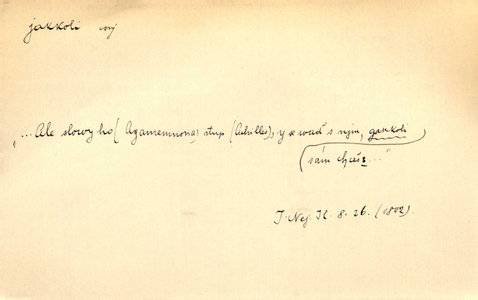 jakkoli
„...Ale slowy ho (Agamemnona) stup (Achilles), y wad s njm, gakkoli
sám chceš..."
J. Nej. Il. 8. 26. (1802).